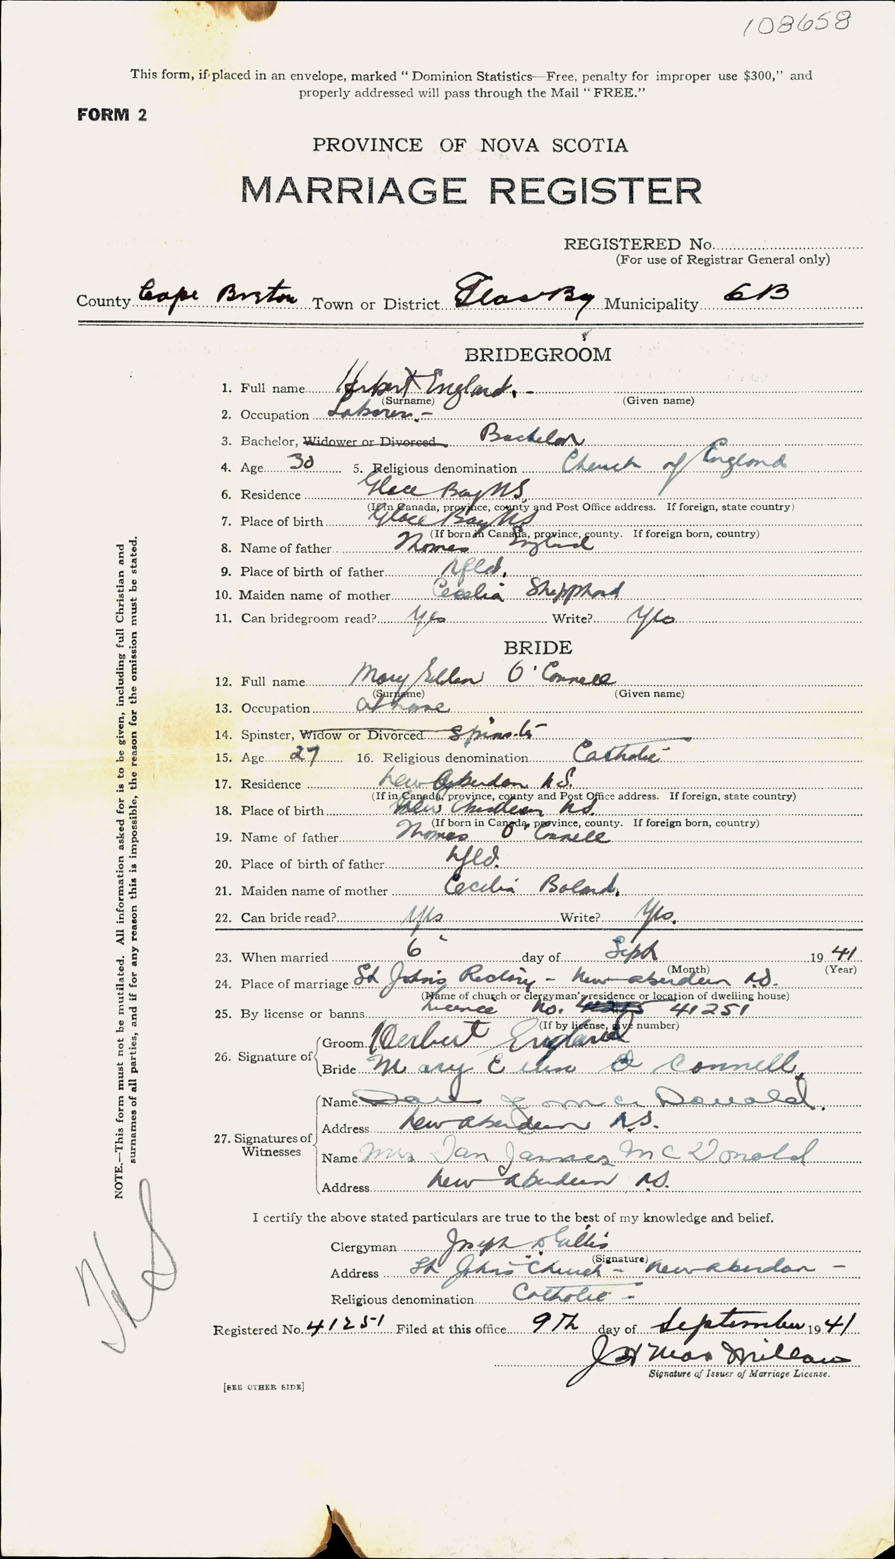 108658
This form, if placed in an envelope, marked "Dominion Statistics—Free, penalty for improper use $300," and
properly addressed will pass through the Mail "FREE."
FORM 2
PROVINCE OF NOVA SCOTIA
MARRIAGE REGISTER
REGISTERED No.
(For use of Registrar General only)
County Cape Breton Town or District Glace Bay Municipality CB
BRIDEGROOM
1. Full name Herbert England. -
(Surname) (Given name)
2. Occupation Laborer. -
3. Bachelor, Widower or Divorced Bachelor
4. Age 30 5. Religious denomination Church of England
6. Residence Glace Bay N.S.
(If in Canada, province, county and Post Office address. If foreign, state country)
7. Place of birth Glace Bay N.S.
(If born in Canada, province, county. If foreign born, country)
8. Name of father Thomas England
9. Place of birth of father Nfld.
10. Maiden name of mother Cecelia Shepphard
11. Can bridegroom read? Yes Write? Yes
BRIDE
12. Full name Mary Ellen O'Connell
(Surname) (Given name)
13. Occupation at home
14. Spinster, Widow or Divorced Spinster
15. Age 27 16. Religious denomination Catholic
17. Residence New Aberdeen N.S.
(If in Canada, province, county and Post Office address. If foreign, state country)
18. Place of birth New Aberdeen N.S.
(If born in Canada, province, county. If foreign born, country)
19. Name of father Thomas O'Connell
20. Place of birth of father Nfld.
21. Maiden name of mother Cecilia Boland.
22. Can bride read? Yes Write? Yes.
23. When married 6 day of Sept 1941
(Month) (Year)
24. Place of marriage St John's Rectory - New Aberdeen N.S.
(Name of church or clergyman's residence or location of dwelling house)
25. By license or banns Licence No. 41251
(If by license, give number)
26. Signature of Groom Herbert England
Bride Mary Ellen O Connell
27. Signatures of Witnesses
Name Dan J McDonald.
Address New Aberdeen N.S.
Name Mrs Dan James McDonald
Address New Aberdeen N.S.
I certify the above stated particulars are true to the best of my knowledge and belief.
Clergyman Joseph D Gillis
(Signature)
Address St John's Church - New Aberdeen -
Religious denomination Catholic -
Registered No. 41251 Filed at this office 9th day of September 1941
Signature of Issuer of Marriage License.
[SEE OTHER SIDE]
NOTE.—This form must not be mutilated. All information asked for is to be given, including full Christian and
surnames of all parties, and if for any reason this is impossible, the reason for the omission must be stated.